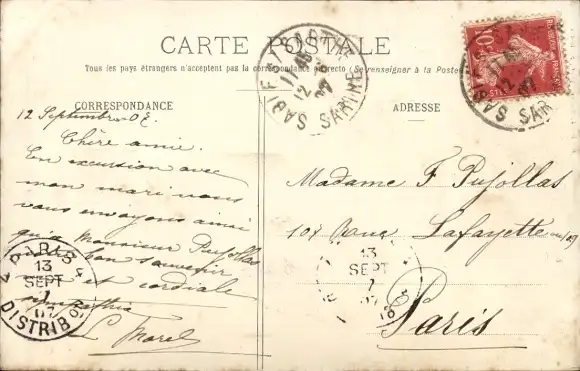 CARTE POSTALE
Tous les pays étrangers n'acceptent pas la correspondance au recto (Se renseigner à la Poste)
CORRESPONDANCE
12 Septembre 07.
Chère amie.
En excursion avec
mon mari nous
vous envoyons ainsi
qu'à Monsieur Pujollas
bon souvenir
et cordiale
sympathie
L. Morel
ADRESSE
Madame F Pujollas
107 Rue Lafayette
Paris
SABLE SARTHE
12
PARIS
13
SEPT
07
DISTRIBON
13
SEPT
SABLE SARTHE
12
10
POSTES